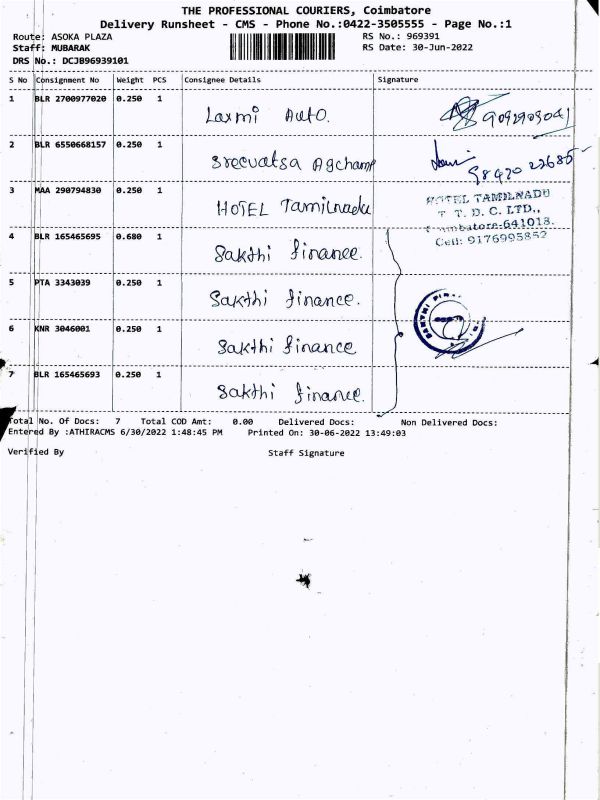 THE PROFESSIONAL COURIERS, Coimbatore
Delivery Runsheet - CMS - Phone No.:0422-3505555 - Page No.:1
Route: ASOKA PLAZA RS No.: 969391
Staff: MUBARAK RS Date: 30-Jun-2022
DRS No.: DCJB96939101
S No Consignment No Weight PCS Consignee Details Signature
1 BLR 2700977020 0.250 1 Laxmi Auto. 9092909041
2 BLR 6550668157 0.250 1 Sreevatsa Agcham 98470 22685
3 MAA 290794830 0.250 1 HOTEL Tamilnadu
HOTEL TAMILNADU
T. T. D. C. LTD.,
Coimbatore-641018.
Cell: 9176995852
4 BLR 165465695 0.680 1 Sakthi finance.
5 PTA 3343039 0.250 1 Sakthi finance.
6 KNR 3046001 0.250 1 Sakthi finance
7 BLR 165465693 0.250 1 Sakthi finance.
Total No. Of Docs: 7 Total COD Amt: 0.00 Delivered Docs: Non Delivered Docs:
Entered By :ATHIRACMS 6/30/2022 1:48:45 PM Printed On: 30-06-2022 13:49:03
Verified By Staff Signature